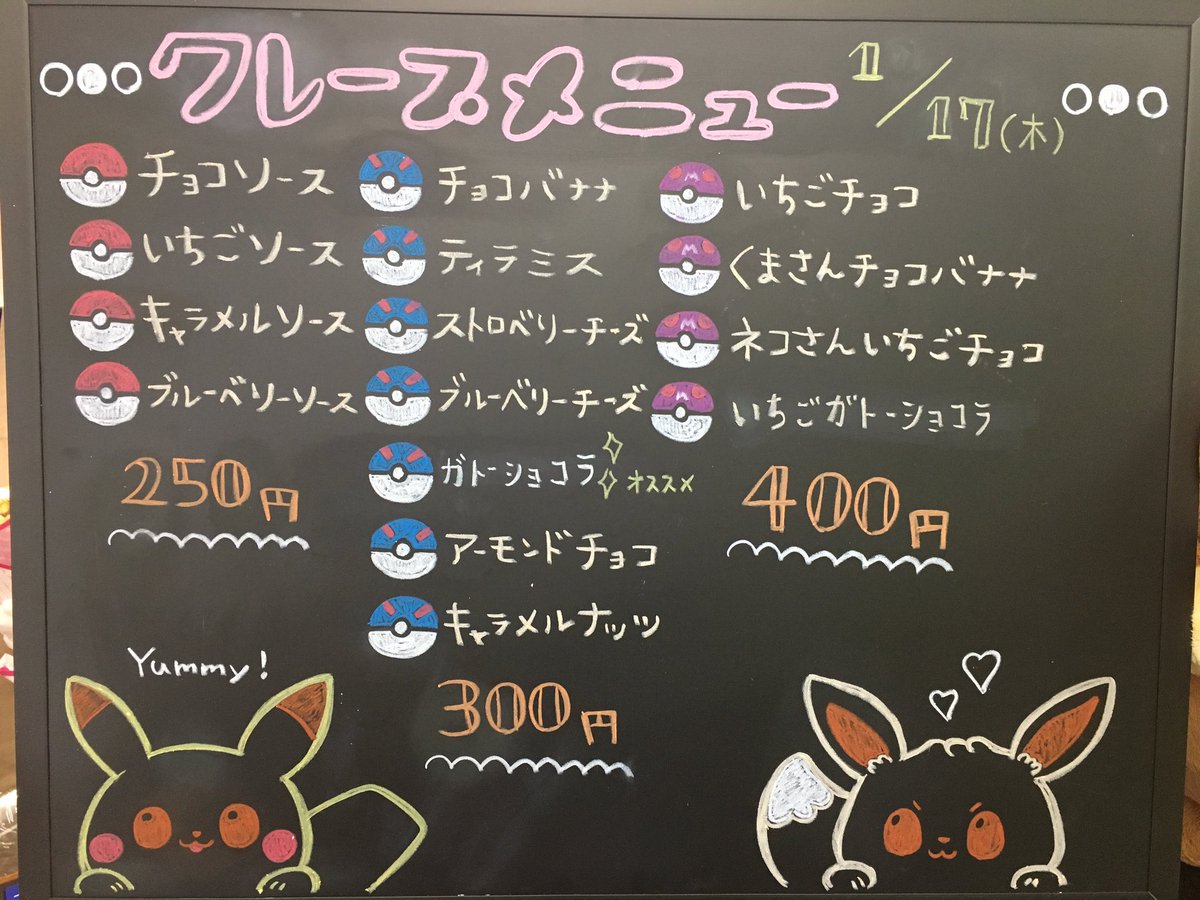 クレープメニュー 1/17(木)
チョコソース
いちごソース
キャラメルソース
ブルーベリーソース
250円
チョコバナナ
ティラミス
ストロベリーチーズ
ブルーベリーチーズ
ガトーショコラ オススメ
アーモンドチョコ
キャラメルナッツ
300円
いちごチョコ
くまさんチョコバナナ
ネコさんいちごチョコ
いちごガトーショコラ
400円
Yummy!